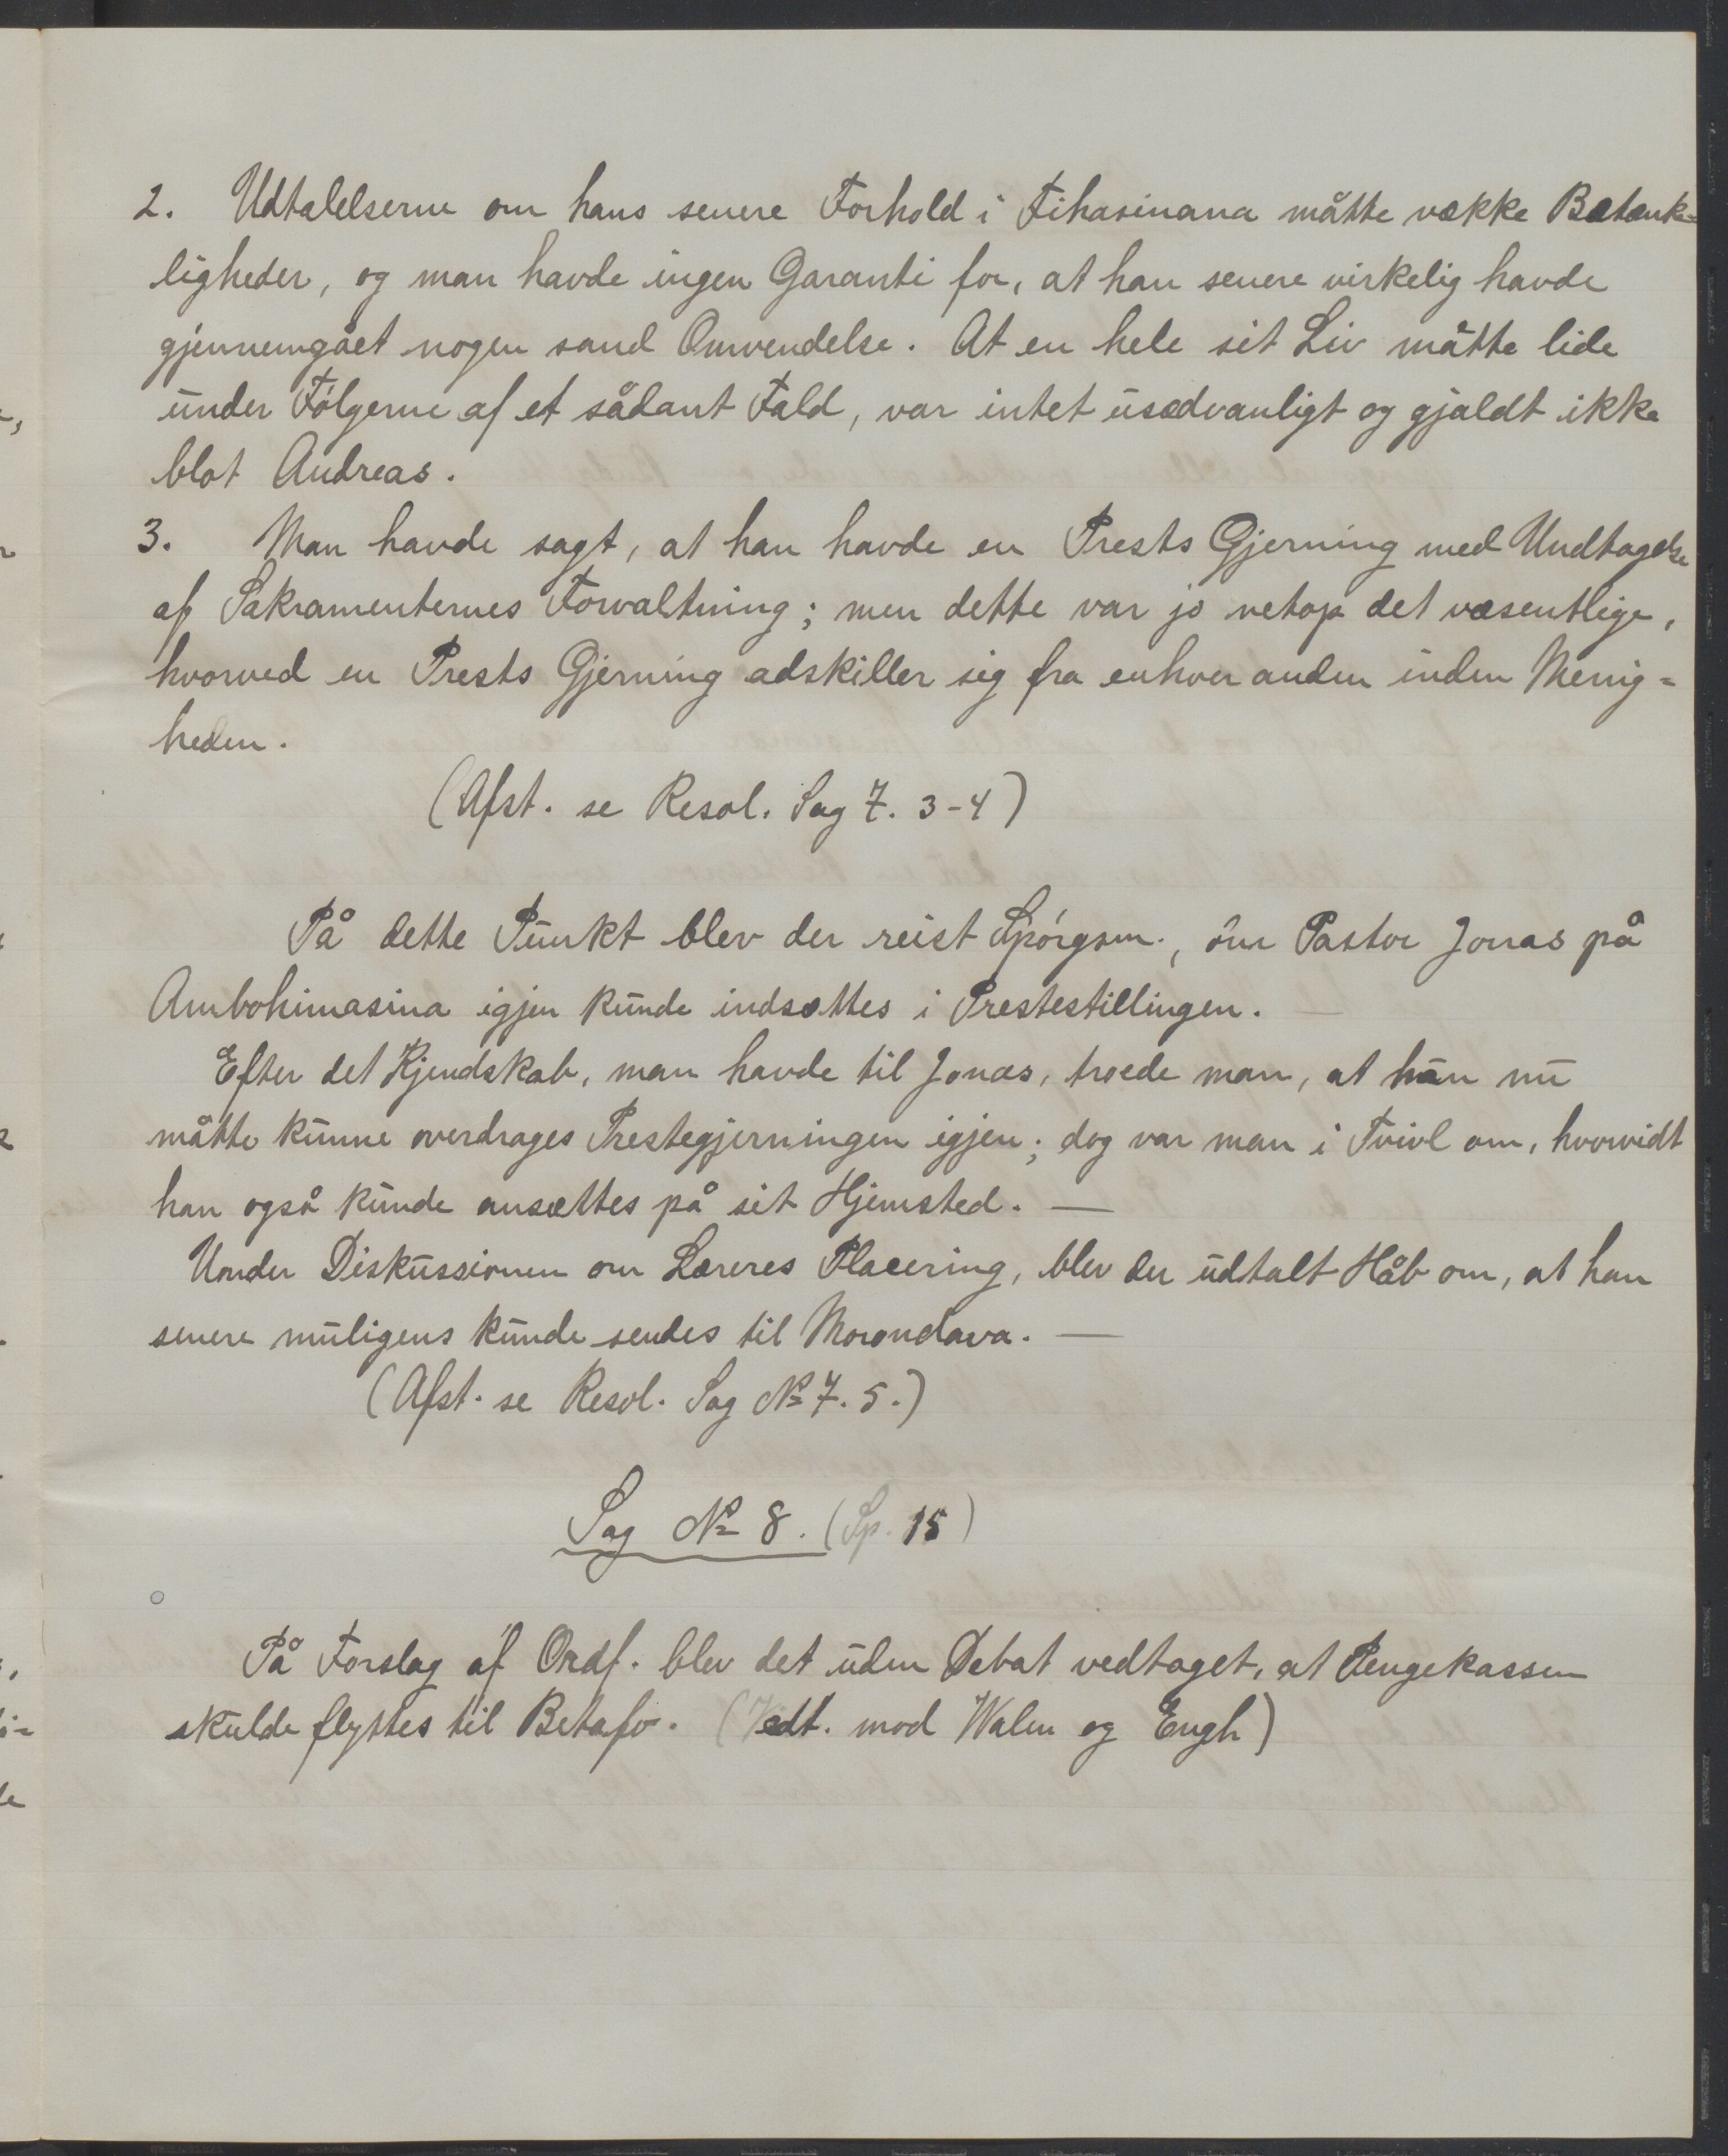 2. Udtalelserne om hans senere Forhold i Fihasinana måtte vække Betænk-
ligheder, og man havde ingen Garanti for, at han senere virkelig havde
gjennemgået nogen sand Omvendelse. At en hele sit Liv måtte lide
under Følgerne af et sådant Fald, var intet usædvanligt og gjaldt ikke
blot Andreas.
3. Man havde sagt, at han havde en Prests Gjerning med Undtagelse
af Sakramenternes Forvaltning; men dette var jo netop det væsentlige,
hvorved en Prests Gjerning adskiller sig fra enhver anden inden Menig=
heden.
(Afst. se Resol. Sag 7. 3-4)
På dette Punkt blev der reist Spørgsm., om Pastor Jonas på
Ambohimasina igjen kunde indsættes i Prestestillingen.
Efter det Kjendskab, man havde til Jonas, troede man, at han nu
måtte kunne overdrages Prestegjerningen igjen; dog var man i Tvivl om, hvorvidt
han også kunde ansættes på sit Hjemsted. —
Under Diskussionen om Læreres Placering, blev der udtalt Håb om, at han
senere muligens kunde sendes til Morondava. —
(Afst. se Resol. Sag № 7. 5.)
Sag № 8. (Sp. 15)
På Forslag af Ordf. blev det uden Debat vedtaget, at Pengekassen
skulde flyttes til Betafo. (Vedt. mod Walen og Engh)